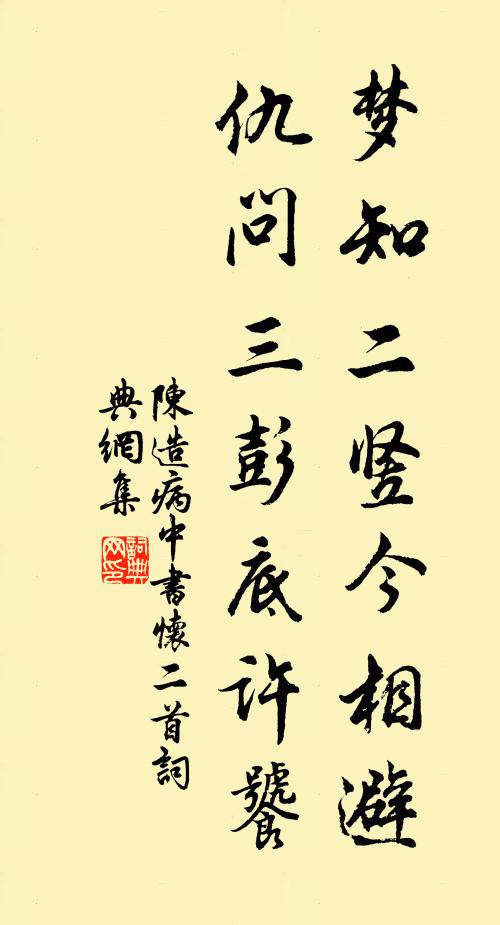 梦知二竖今相避
仇问三彭底许饕
陳造病中書懷二首詞
典網集
詞典网印